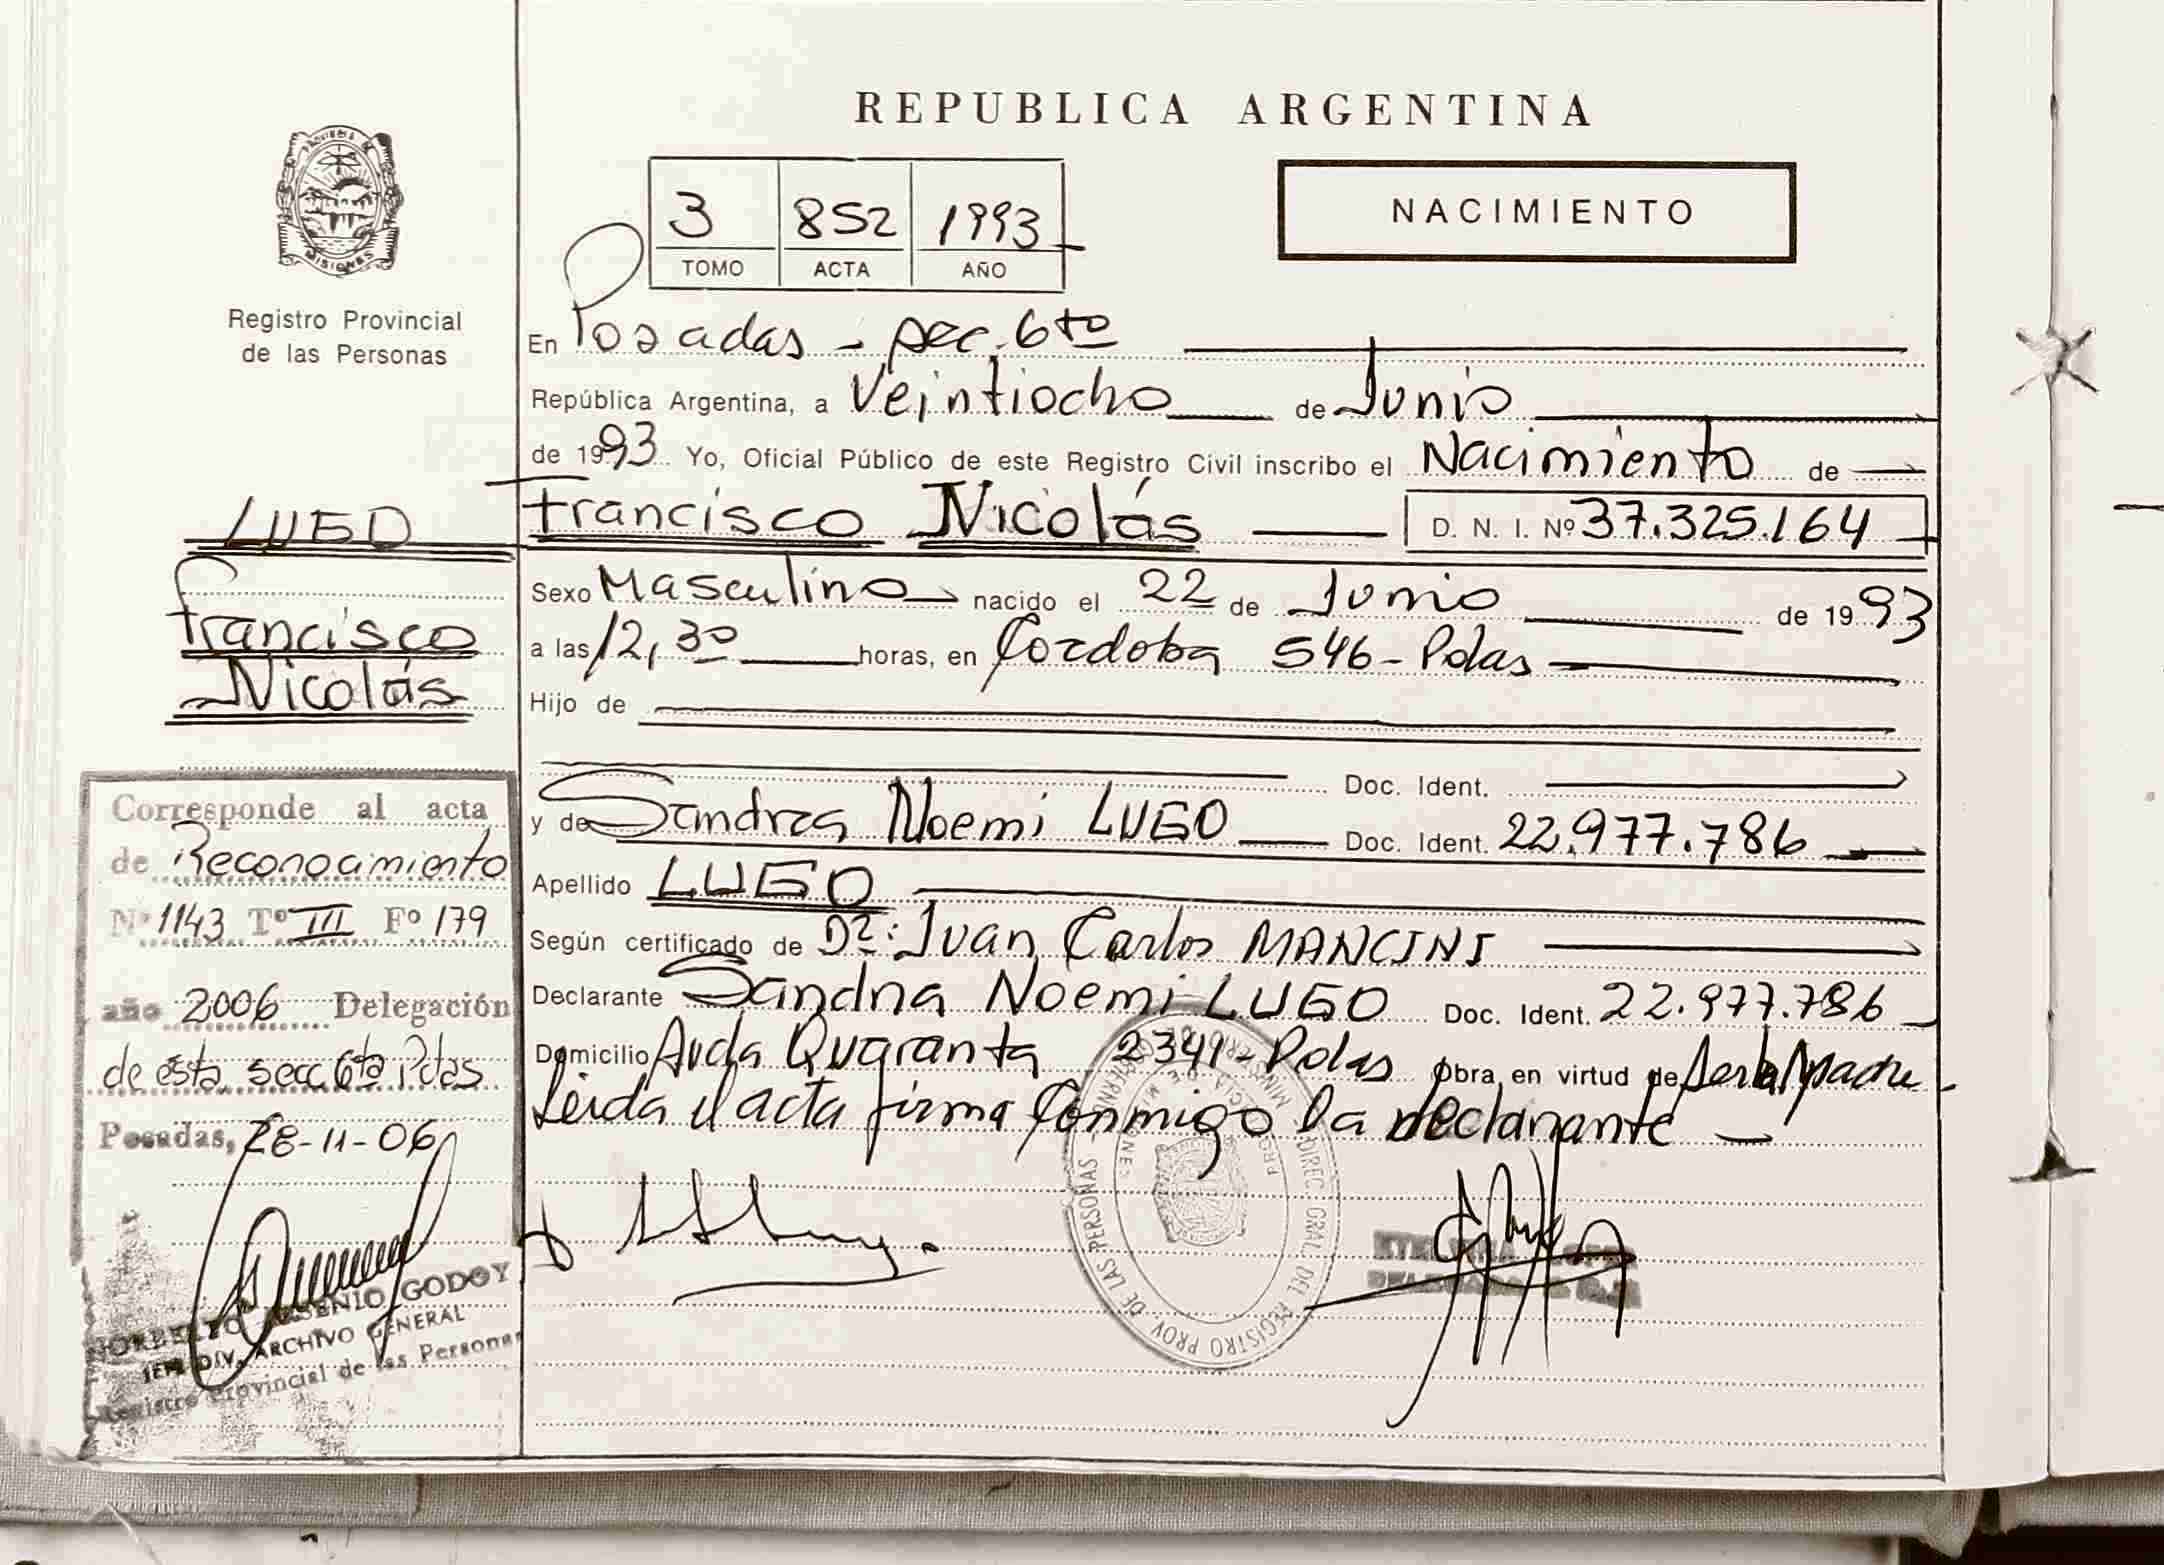 REPUBLICA ARGENTINA
PROVINCIA DE
MISIONES
Registro Provincial
de las Personas
3 852 1993
TOMO ACTA AÑO
NACIMIENTO
En Posadas - sec. 6ta
República Argentina, a Veintiocho de Junio
de 1993 Yo, Oficial Público de este Registro Civil inscribo el Nacimiento de
Francisco Nicolás D. N. I. Nº 37.325.164
Sexo Masculino nacido el 22 de Junio de 1993
a las 12,30 horas, en Cordoba 546 - Pdas
Hijo de
Doc. Ident.
y de Sandra Noemi LUGO Doc. Ident. 22.977.786
Apellido LUGO
Según certificado de Dr: Juan Carlos MANCINI
Declarante Sandra Noemi LUGO Doc. Ident. 22.977.786
Domicilio Avda Quaranta 2341 - Pdas Obra en virtud de ser la madre
Leida el acta firma conmigo la declarante
LUGO
Francisco
Nicolás
Corresponde al acta
de Reconocimiento
Nº 1143 Tº III Fº 179
año 2006 Delegación
de esta secc 6ta Pdas
Posadas, 28-11-06
NORBERTO ARSENIO GODOY
JEFE DIV. ARCHIVO GENERAL
Registro Provincial de las Personas
DIREC. GRAL. DEL REGISTRO PROV. DE LAS PERSONAS